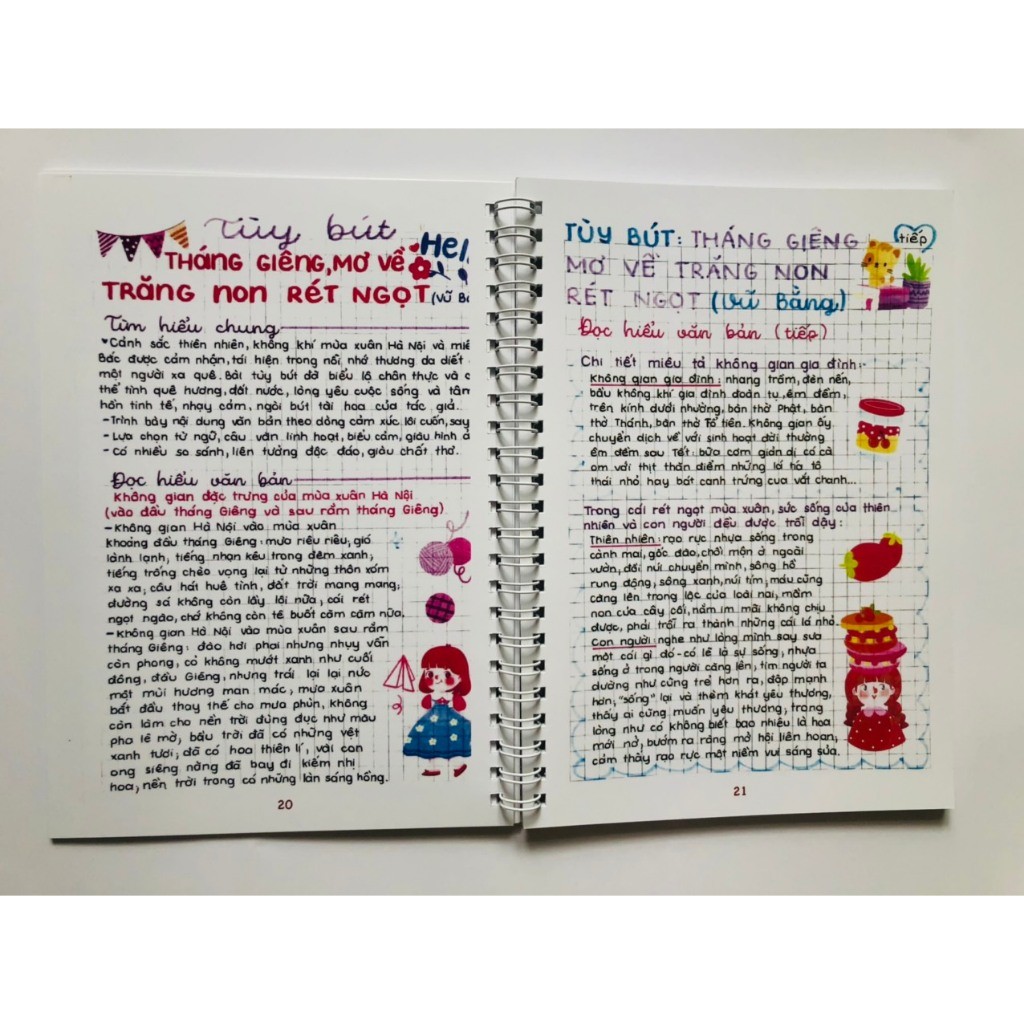 Tùy bút
Hel
THÁNG GIÊNG, MƠ VỀ
TRĂNG NON RÉT NGỌT (Vũ Bằ
Tìm hiểu chung
Cảnh sắc thiên nhiên, không khí mùa xuân Hà Nội và miề
Bắc được cảm nhận, tái hiện trong nổi nhớ thương da diết
một người xa quê. Bài tùy bút đã biểu lộ chân thực và c
thể tình quê hương, đất nước, lòng yêu cuộc sống và tâm
hồn tinh tế, nhạy cảm, ngòi bút tài hoa của tác giả.
- Trình bày nội dung văn bản theo dòng cảm xúc lôi cuốn, say
- Lựa chọn từ ngữ, câu văn linh hoạt, biểu cảm, giàu hình ả
- Có nhiều so sánh, liên tưởng độc đáo, giàu chất thơ.
Đọc hiểu văn bản
Không gian đặc trưng của mùa xuân Hà Nội
(vào đầu tháng Giêng và sau rằm tháng Giêng)
- Không gian Hà Nội vào mùa xuân
khoảng đầu tháng Giêng: mưa riêu riêu, gió
lành lạnh, tiếng nhạn kêu trong đêm xanh,
tiếng trống chèo vọng lại từ những thôn xóm
xa xa, câu hát huê tình, đất trời mang mang,
đường sá không còn lầy lội nữa, cái rét
ngọt ngào, chớ không còn tê buốt căm căm nữa.
- Không gian Hà Nội vào mùa xuân sau rằm
tháng Giêng: đào hơi phai nhưng nhụy vẫn
còn phong, cỏ không mướt xanh như cuối
đông, đầu Giêng, nhưng trái lại lại nức
một mùi hương man mác, mưa xuân
bắt đầu thay thế cho mưa phùn, không
còn làm cho nền trời đùng đục như màu
pha lê mờ, bầu trời đã có những vệt
xanh tươi, đã có hoa thiên lí, vài con
ong siêng năng đã bay đi kiếm nhị
hoa, nền trời trong có những làn sáng hồng.
20
TÙY BÚT: THÁNG GIÊNG
tiếp
MƠ VỀ TRĂNG NON
RÉT NGỌT (Vũ Bằng)
Đọc hiểu văn bản (tiếp)
Chi tiết miêu tả không gian gia đình:
Không gian gia đình: nhang trầm, đèn nến,
bầu không khí gia đình đoàn tụ, êm đềm,
trên kính dưới nhường, bàn thờ Phật, bàn
thờ Thánh, bàn thờ Tổ tiên. Không gian ấy
chuyển dịch về với sinh hoạt đời thường
êm đềm sau Tết: bữa cơm giản dị có cà
om với thịt thăn điểm những lá tía tô
thái nhỏ hay bát canh trứng cua vắt chanh...
Trong cái rét ngọt mùa xuân, sức sống của thiên
nhiên và con người đều được trỗi dậy:
Thiên nhiên: rạo rực nhựa sống trong
cành mai, gốc đào, chồi mận ở ngoài
vườn, đồi núi chuyển mình, sông hồ
rung động, sông xanh, núi tím, máu cũng
căng lên trong lộc của loài nai, mầm
non của cây cối, nằm im mãi không chịu
được, phải trỗi ra thành những cái lá nhỏ.
Con người: nghe như lòng mình say sưa
một cái gì đó - có lẽ là sự sống, nhựa
sống ở trong người căng lên, tim người ta
dường như cũng trẻ hơn ra, đập mạnh
hơn, "sống" lại và thèm khát yêu thương,
thấy ai cũng muốn yêu thương, trong
lòng như có không biết bao nhiêu là hoa
mới nở, bướm ra ràng mở hội liên hoan,
cảm thấy rạo rực một niềm vui sáng sủa.
21